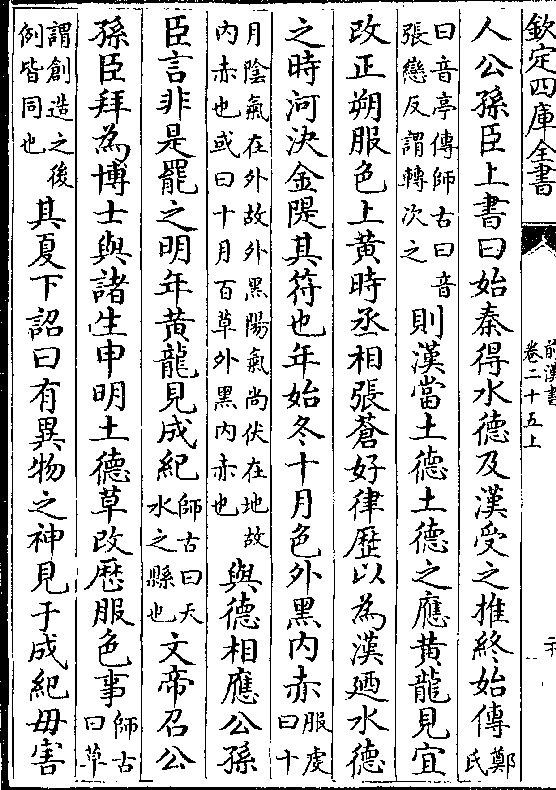 欽定四庫全書
前漢書
卷二十五上
人公孫臣上書曰始秦得水德及漢受之推終始傳鄭氏
曰音亭傳師古曰音張戀反謂轉次之則漢當土德土德之應黄龍見宜
改正朔服色上黄時丞相張蒼好律歷以為漢廼水德
之時河決金隄其符也年始冬十月色外黑内赤服虔曰十
月陰氣在外故外黑陽氣尚伏在地故内赤也或曰十月百草外黑内赤也與德相應公孫
臣言非是罷之明年黄龍見成紀師古曰天水之縣也文帝召公
孫臣拜為博士與諸生申明土德草改歷服色事師古曰草
謂創造之後例皆同也其夏下詔曰有異物之神見于成紀毋害